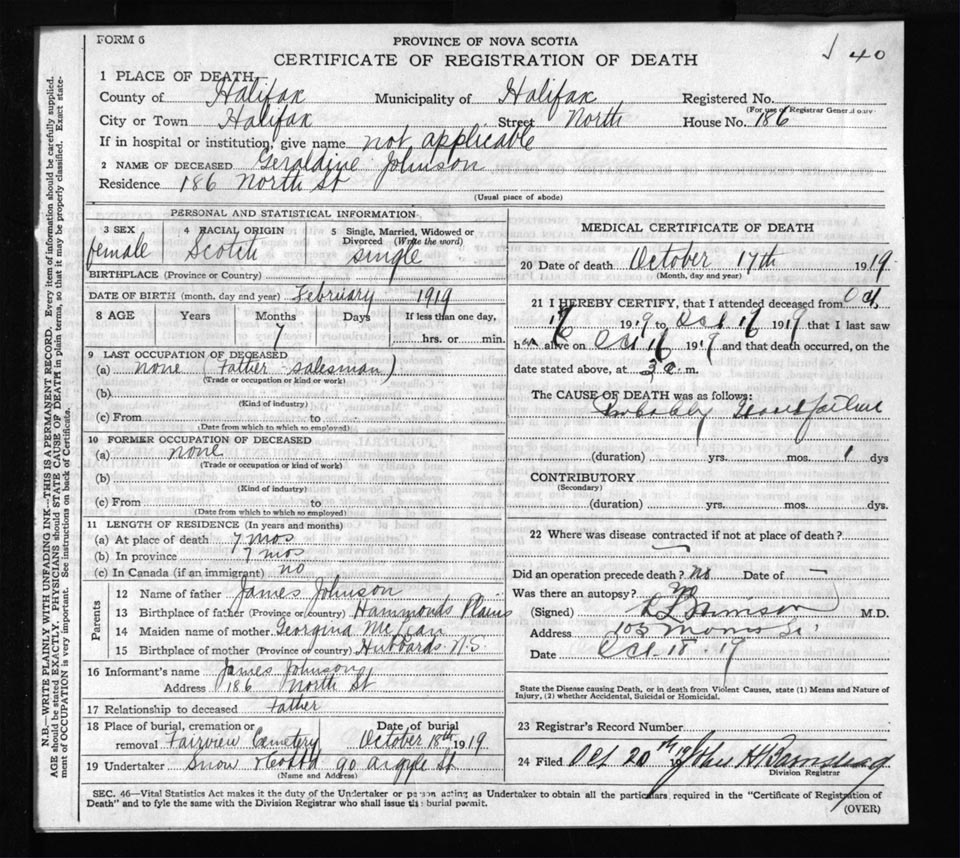 FORM 6
PROVINCE OF NOVA SCOTIA
40
CERTIFICATE OF REGISTRATION OF DEATH
1 PLACE OF DEATH
County of Halifax Municipality of Halifax Registered No.
(For use of Registrar General only
City or Town Halifax Street North House No. 186
If in hospital or institution, give name not applicable
2 NAME OF DECEASED Geraldine Johnson
Residence 186 North St
(Usual place of abode)
N.B.—WRITE PLAINLY WITH UNFADING INK—THIS IS A PERMANENT RECORD. Every item of information should be carefully supplied.
AGE should be stated EXACTLY. PHYSICIANS should STATE CAUSE OF DEATH in plain terms, so that it may be properly classified. Exact state-
ment of OCCUPATION is very important. See instructions on back of Certificate.
PERSONAL AND STATISTICAL INFORMATION
3 SEX female
4 RACIAL ORIGIN Scotch
5 Single, Married, Widowed or
Divorced (Write the word)
single
BIRTHPLACE (Province or Country)
DATE OF BIRTH (month, day and year) February 1919
8 AGE Years Months Days If less than one day,
7 hrs. or min.
9 LAST OCCUPATION OF DECEASED
(a) none (Father salesman)
(Trade or occupation or kind or work)
(b)
(Kind of industry)
(c) From to
(Date from which to which so employed)
10 FORMER OCCUPATION OF DECEASED
(a) none
(Trade or occupation or kind of work)
(b)
(Kind of industry)
(c) From to
(Date from which to which so employed)
11 LENGTH OF RESIDENCE (In years and months)
(a) At place of death 7 mos
(b) In province 7 mos
(c) In Canada (if an immigrant) no
Parents
12 Name of father James Johnson
13 Birthplace of father (Province or country) Hammonds Plains
14 Maiden name of mother Georgina McLean
15 Birthplace of mother (Province or country) Hubbards N.S.
16 Informant's name James Johnson
Address 186 North St
17 Relationship to deceased Father
18 Place of burial, cremation or Date of burial
removal Fairview Cemetery October 18th 1919
19 Undertaker Snow 90 Argyle St
(Name and Address)
MEDICAL CERTIFICATE OF DEATH
20 Date of death October 17th 1919
(Month, day and year)
21 I HEREBY CERTIFY, that I attended deceased from Oct
16 1919 to Oct 16 1919 that I last saw
her alive on Oct 16 1919 and that death occurred, on the
date stated above, at 3 a. m.
The CAUSE OF DEATH was as follows:
Probably Heart failure
(duration) yrs. mos. 1 dys
CONTRIBUTORY
(Secondary)
(duration) yrs. mos. dys.
22 Where was disease contracted if not at place of death?
Did an operation precede death? No Date of —
Was there an autopsy? no
(Signed) M.D.
Address 103 Morris St
Date Oct 18 19
State the Disease causing Death, or in death from Violent Causes, state (1) Means and Nature of
Injury, (2) whether Accidental, Suicidal or Homicidal.
23 Registrar's Record Number
24 Filed Oct 20th 19 John H
Division Registrar
SEC. 46—Vital Statistics Act makes it the duty of the Undertaker or person acting as Undertaker to obtain all the particulars required in the "Certificate of Registration of
Death" and to fyle the same with the Division Registrar who shall issue the burial permit.
(OVER)